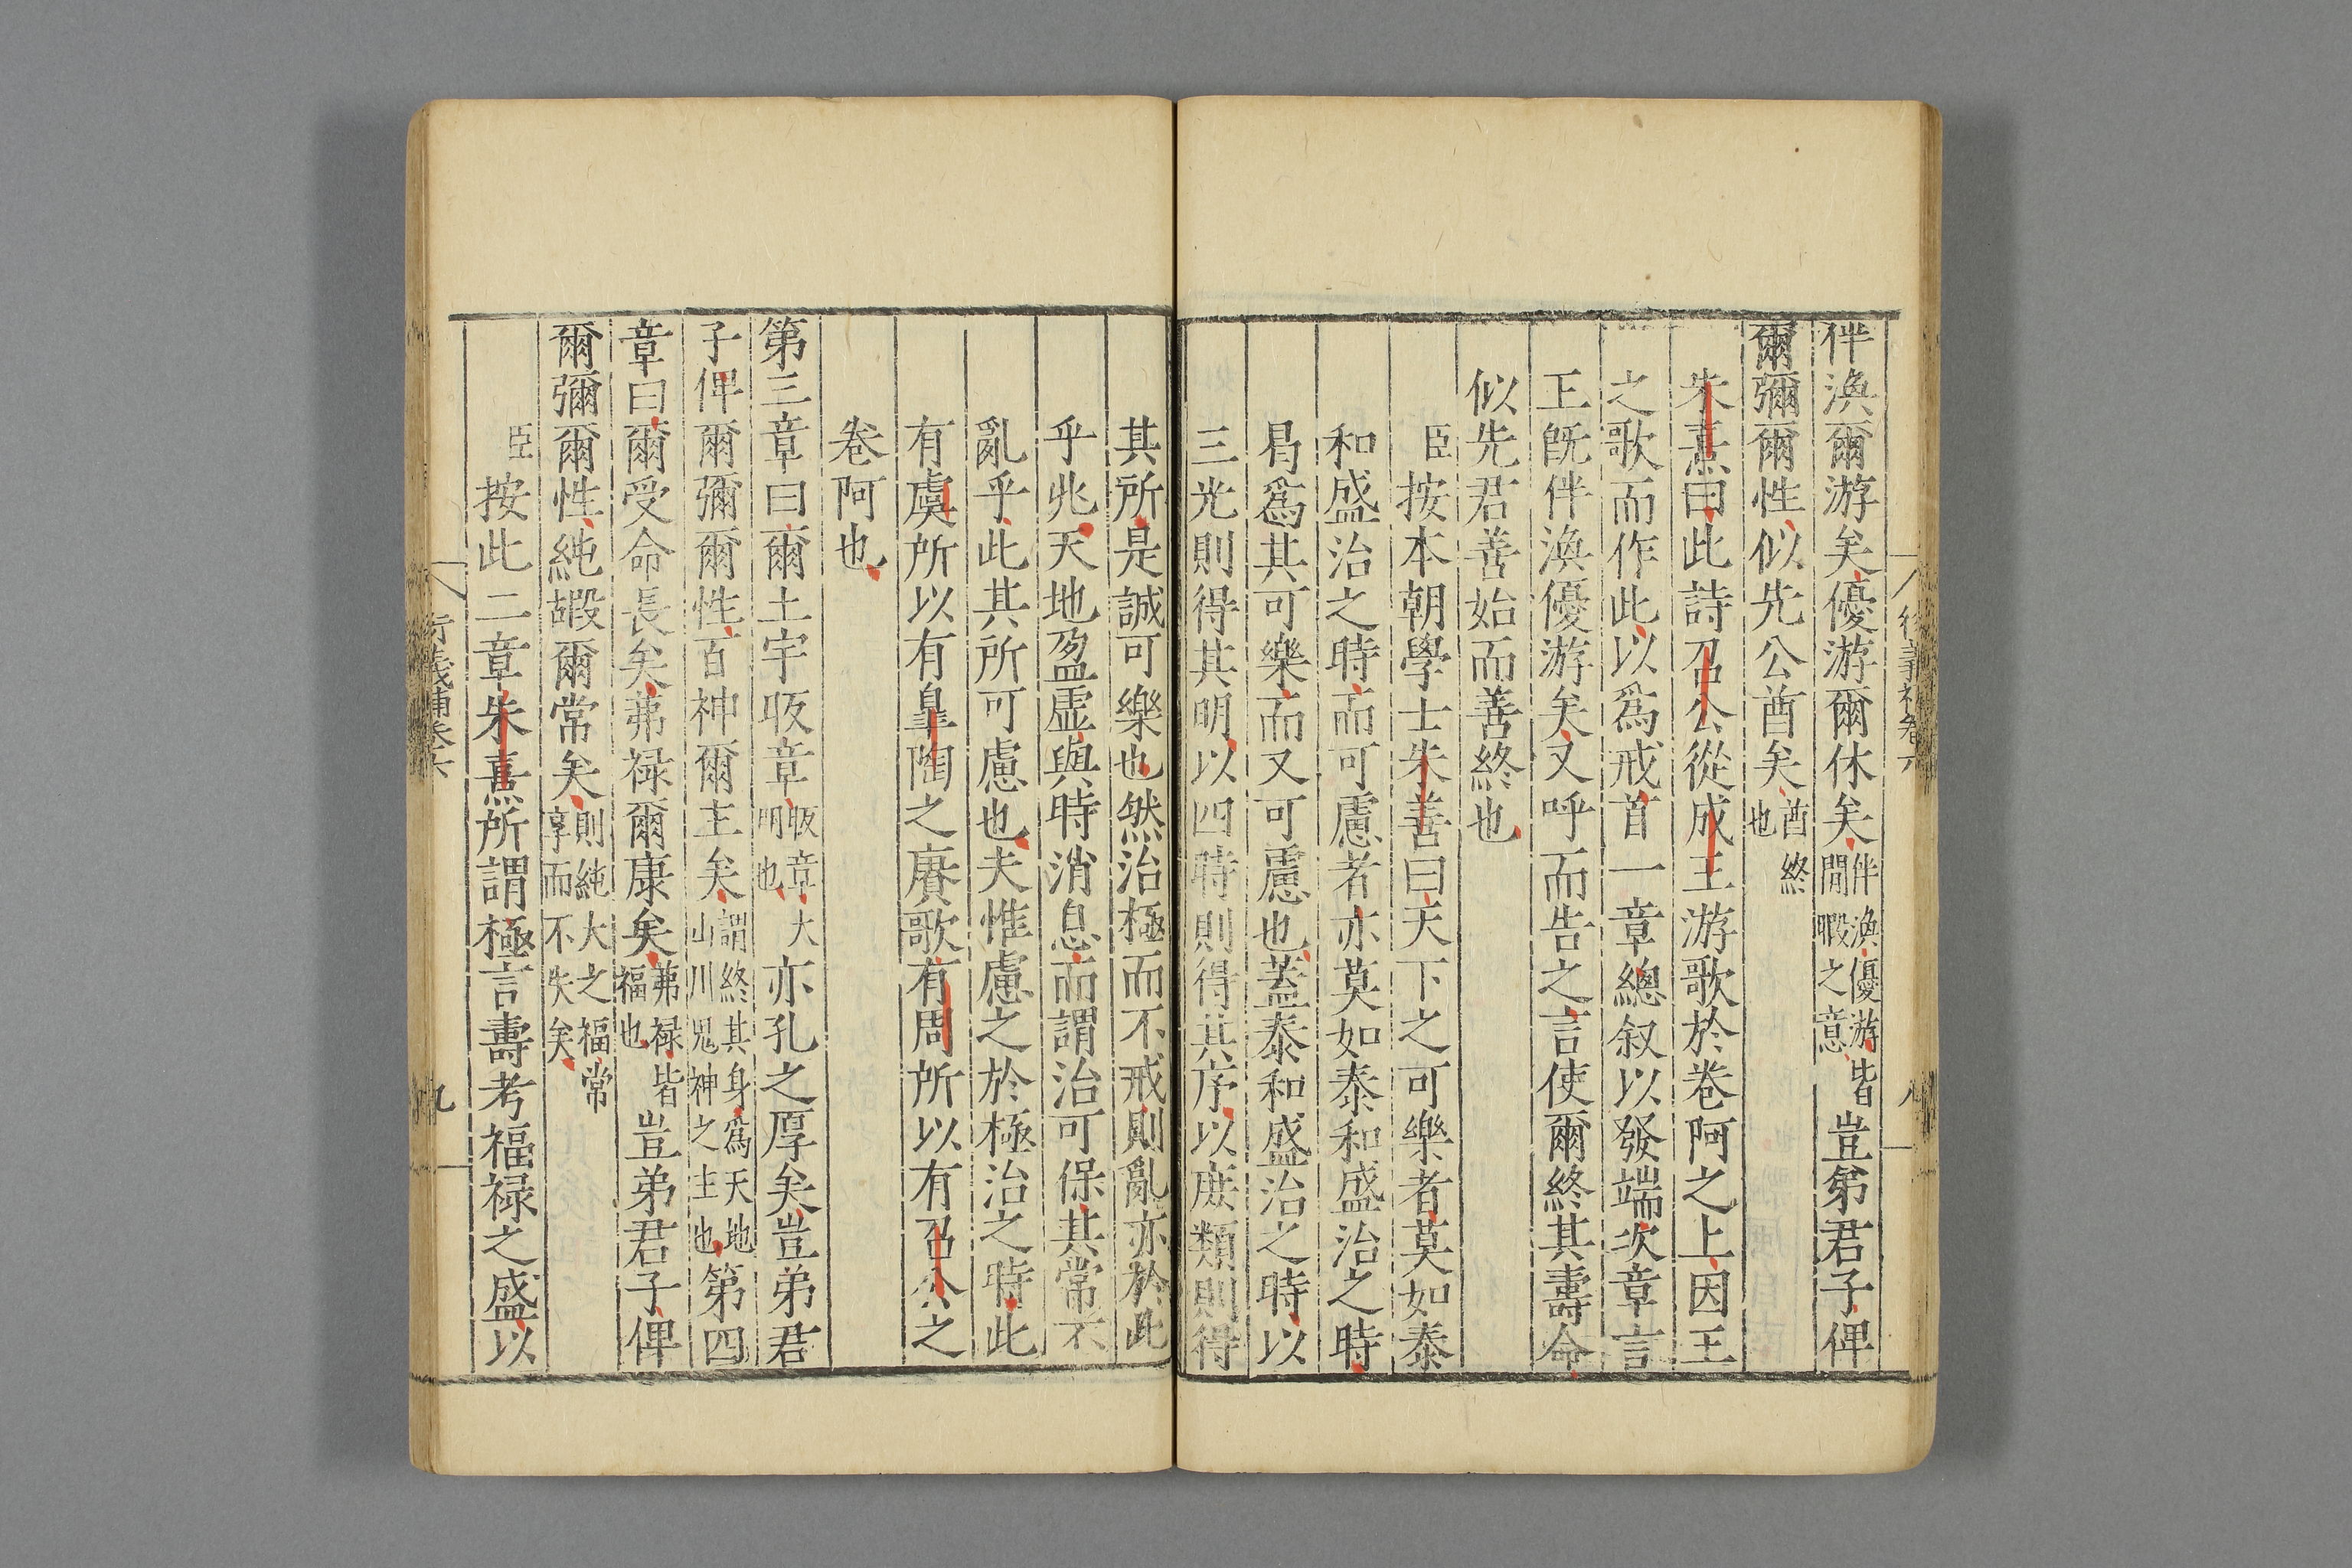 伴渙爾游矣優游爾休矣伴渙優游皆閒暇之意豈弟君子俾
爾彌爾性似先公酋矣酋終也
朱熹曰此詩召公從成王游歌於卷阿之上因王
之歌而作此以爲戒首一章總叙以發端次章言
王旣伴渙優游矣又呼而告之言使爾終其壽命
似先君善始而善終也
臣按本朝學士朱善曰天下之可樂者莫如泰
和盛治之時而可慮者亦莫如泰和盛治之時
曷爲其可樂而又可慮也蓋泰和盛治之時以
三光則得其明以四時則得其序以庶類則得
其所是誠可樂也然治極而不戒則亂亦於此
乎兆天地盈虛與時消息而謂治可保其常不
亂乎此其所可慮也夫惟慮之於極治之時此
有虞所以有臯陶之賡歌有周所以有召公之
卷阿也
第三章曰爾土宇昄章昄章大明也亦孔之厚矣豈弟君
子俾爾彌爾性百神爾主矣謂終其身爲天地山川鬼神之主也第四
章曰爾受命長矣茀禄爾康矣茀禄皆福也豈弟君子俾
爾彌爾性純嘏爾常矣則純大之福常享而不失矣
臣按此二章朱熹所謂極言壽考福禄之盛以
九